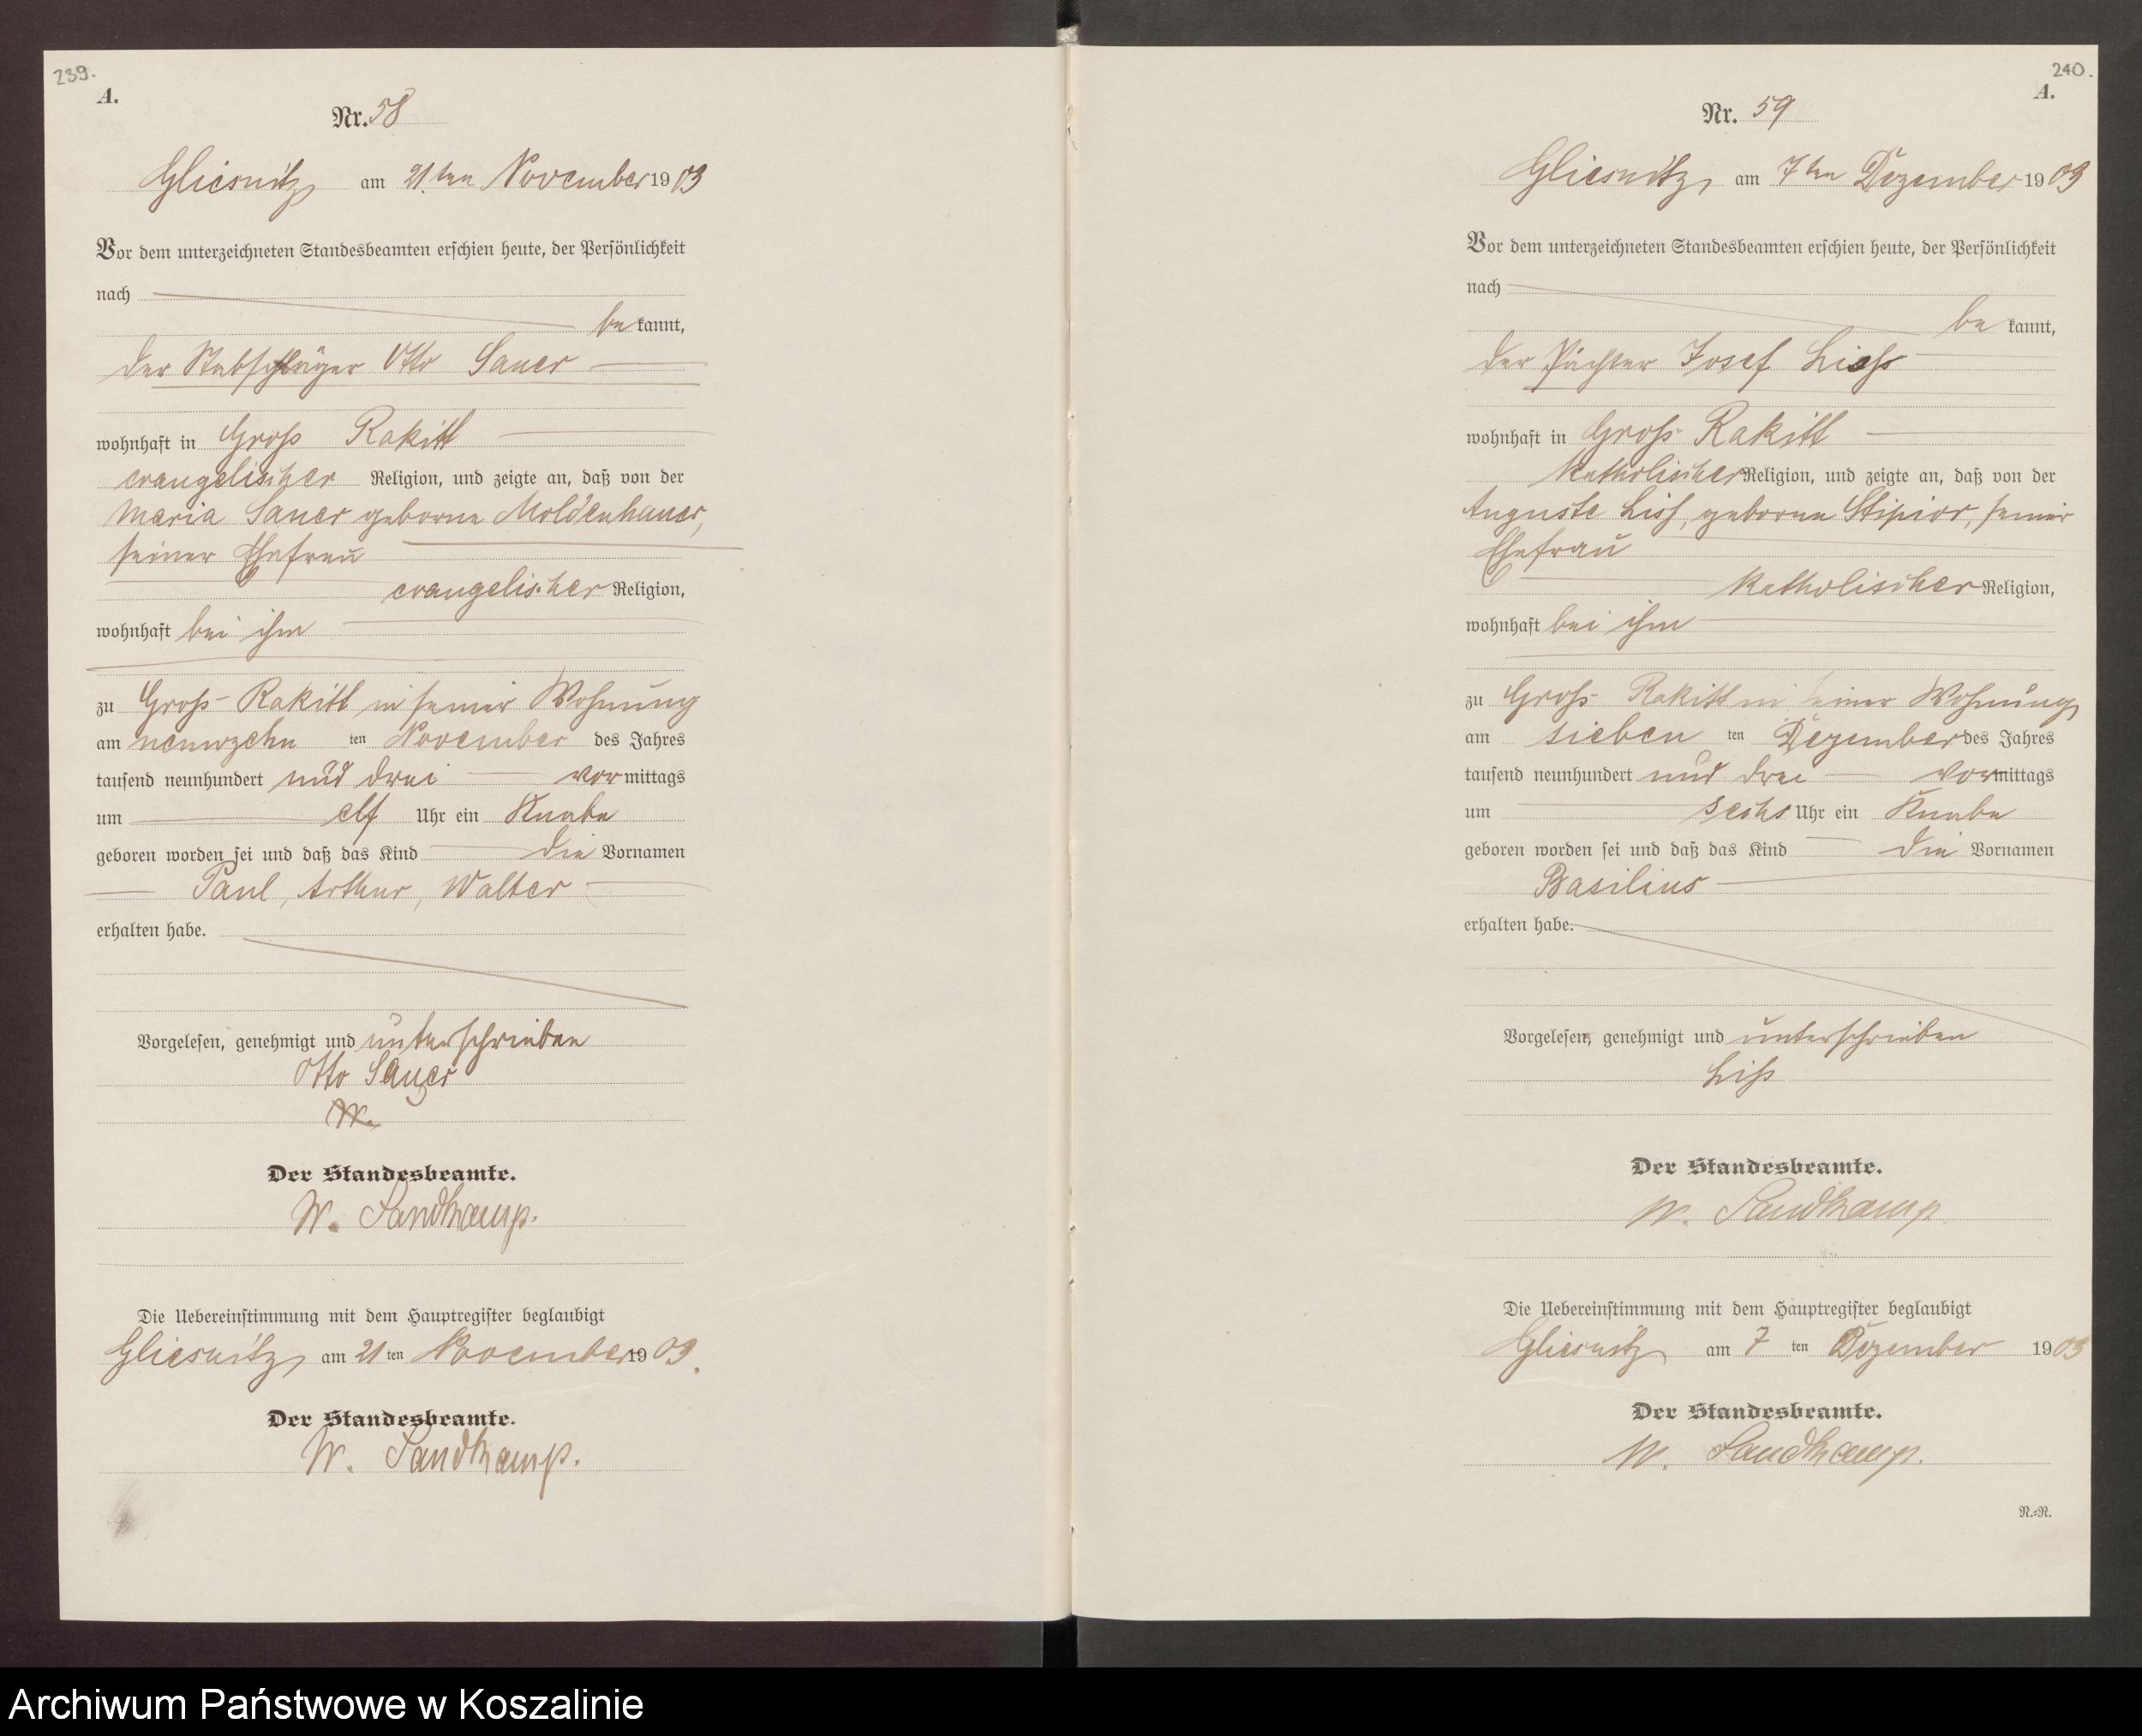 239.
A.
Nr. 58
Gliesnitz am 21ten November 1903
Vor dem unterzeichneten Standesbeamten erschien heute, der Persönlichkeit
nach
be kannt,
der Stabschläger Otto Sauer
wohnhaft in Groß Rakitt
evangelischer Religion, und zeigte an, daß von der
Maria Sauer geborne Moldenhauer,
seiner Ehefrau
evangelischer Religion,
wohnhaft bei ihm
zu Groß-Rakitt in seiner Wohnung
am neunzehn ten November des Jahres
tausend neunhundert und drei vormittags
um elf Uhr ein Knabe
geboren worden sei und daß das Kind die Vornamen
Paul, Arthur, Walter
erhalten habe.
Vorgelesen, genehmigt und unterschrieben
Otto Sauer
Der Standesbeamte.
W. Sandkamp.
Die Uebereinstimmung mit dem Hauptregister beglaubigt
Gliesnitz am 21 ten November 1903.
Der Standesbeamte.
W. Sandkamp.
240.
A.
Nr. 59
Gliesnitz, am 7ten Dezember 1903
Vor dem unterzeichneten Standesbeamten erschien heute, der Persönlichkeit
nach
be kannt,
der Pächter Josef Liß
wohnhaft in Groß-Rakitt
katholischer Religion, und zeigte an, daß von der
Auguste Liß, geborne Stipior, seiner
Ehefrau
katholischer Religion,
wohnhaft bei ihm
zu Groß-Rakitt in seiner Wohnung
am sieben ten Dezember des Jahres
tausend neunhundert und drei vormittags
um sechs Uhr ein Knabe
geboren worden sei und daß das Kind die Vornamen
Basilius
erhalten habe.
Vorgelesen, genehmigt und unterschrieben
Liß
Der Standesbeamte.
W. Sandkamp
Die Uebereinstimmung mit dem Hauptregister beglaubigt
Gliesnitz am 7 ten Dezember 1903
Der Standesbeamte.
W. Sandkamp.
N.=N.
Archiwum Państwowe w Koszalinie